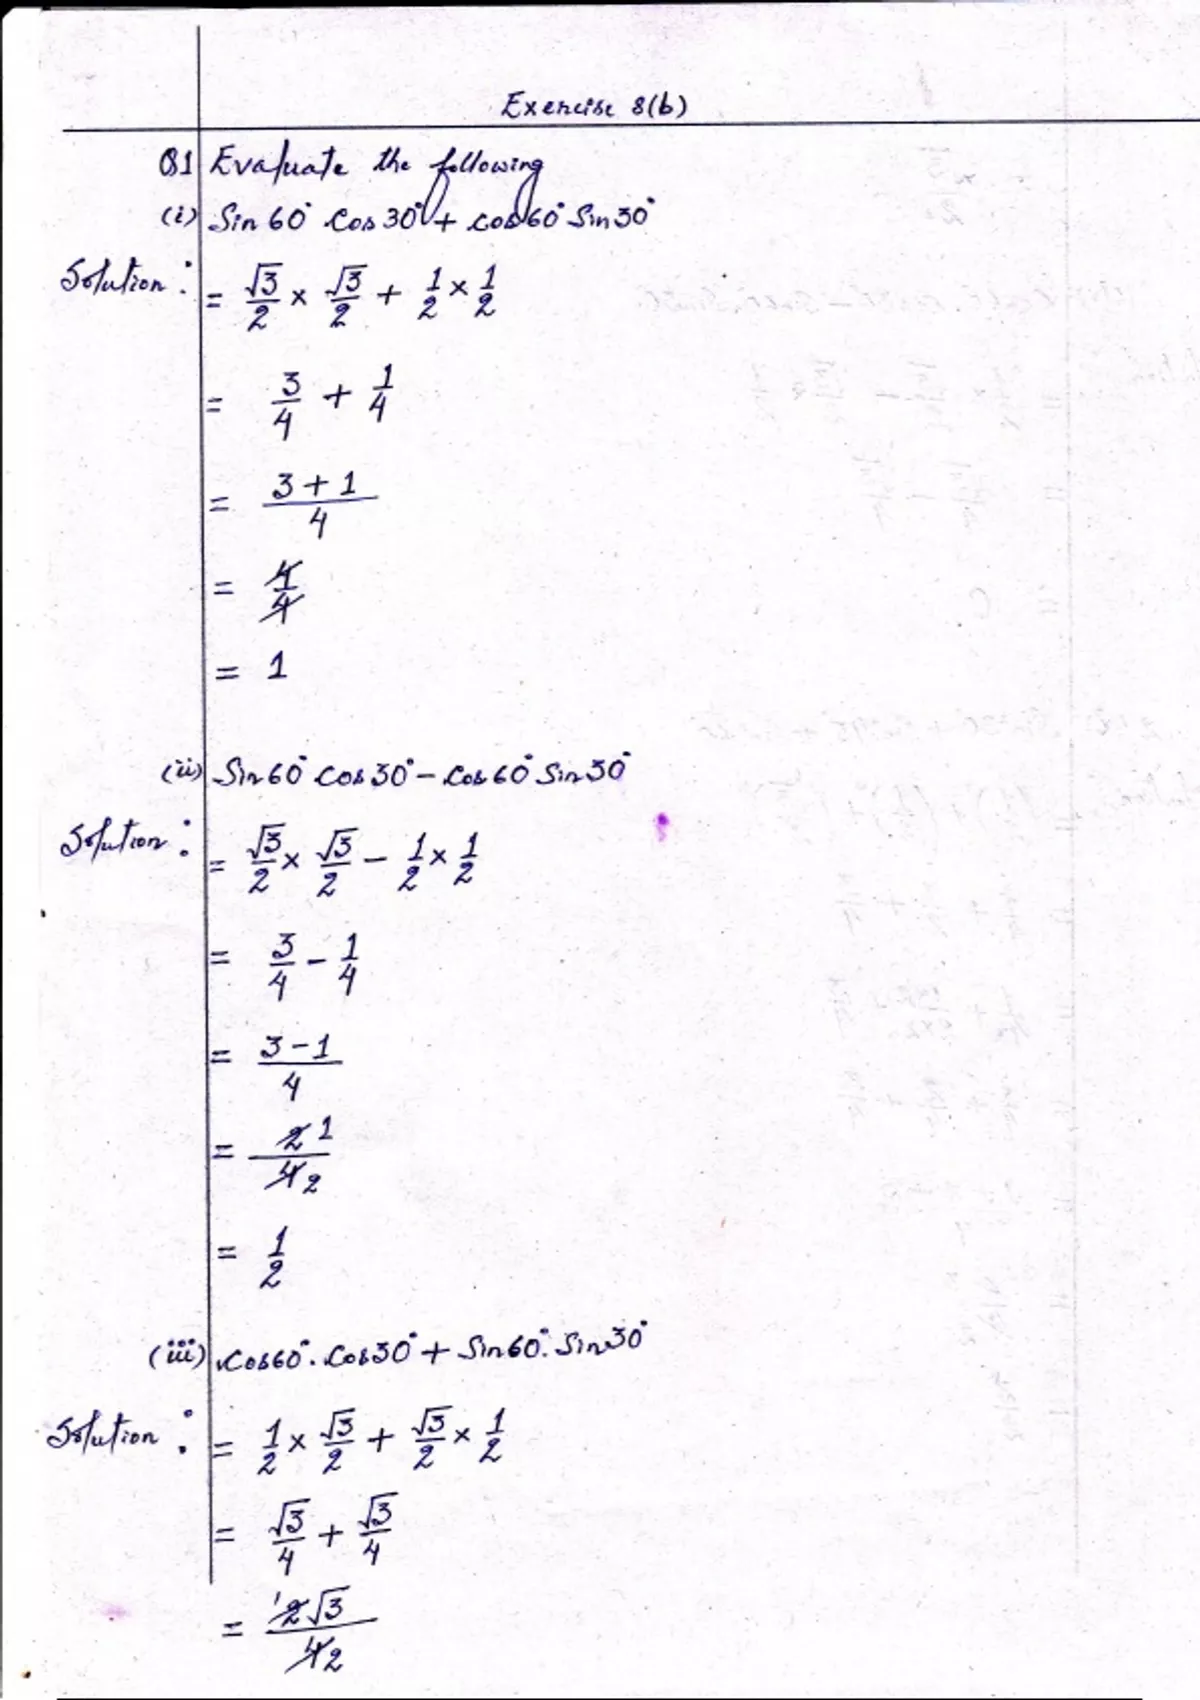 Exercise 8(b)
Q1 Evaluate the following
(i) Sin 60° Cos 30° + Cos 60° Sin 30°
Solution : = √3/2 × √3/2 + 1/2 × 1/2
= 3/4 + 1/4
= 3+1/4
= 4/4
= 1
(ii) Sin 60° Cos 30° – Cos 60° Sin 30°
Solution : = √3/2 × √3/2 – 1/2 × 1/2
= 3/4 – 1/4
= 3-1/4
= 2 1/4 2
= 1/2
(iii) Cos 60° . Cos 30° + Sin 60° . Sin 30°
Solution : = 1/2 × √3/2 + √3/2 × 1/2
= √3/4 + √3/4
= 1 2√3/4 2